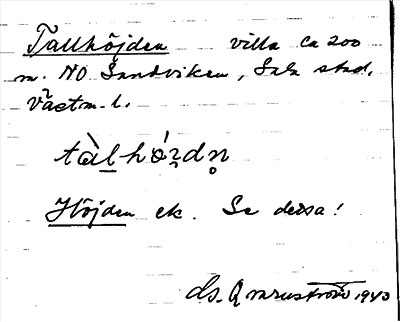 Tallhöjden villa ca 200
m. NO Sandviken, Sala stad,
Västm. l.
tàlhö́ɲdn̥
Höjden ek. Se dessa!
ds. 1943